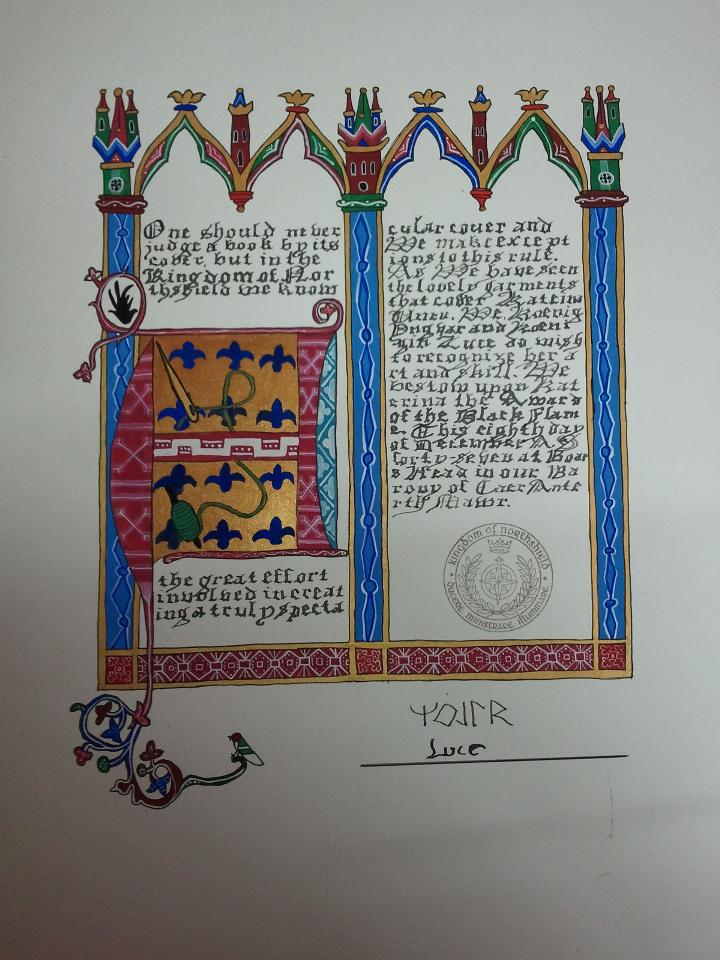 One should never
judge a book by its
cover, but in the
Kingdom of Nor
thshield we know
the great effort
involved in creat
ing a truly specta
cular cover and
We make except
ions to this rule.
As We have seen
the lovely garments
that cover Katerina
We, Koenig
Yngvar and Koeni
gin Luce do wish
to recognize her a
rt and skill. We
bestow upon Kat
erina the Award
of the Black Flam
e. This eighth day
of December A.S
forty-seven at Boar
s Head in our Ba
rony of Caer Ante
rth Mawr.
Kingdom of Northshield
Ducere Ministrare Illuminare
Luce